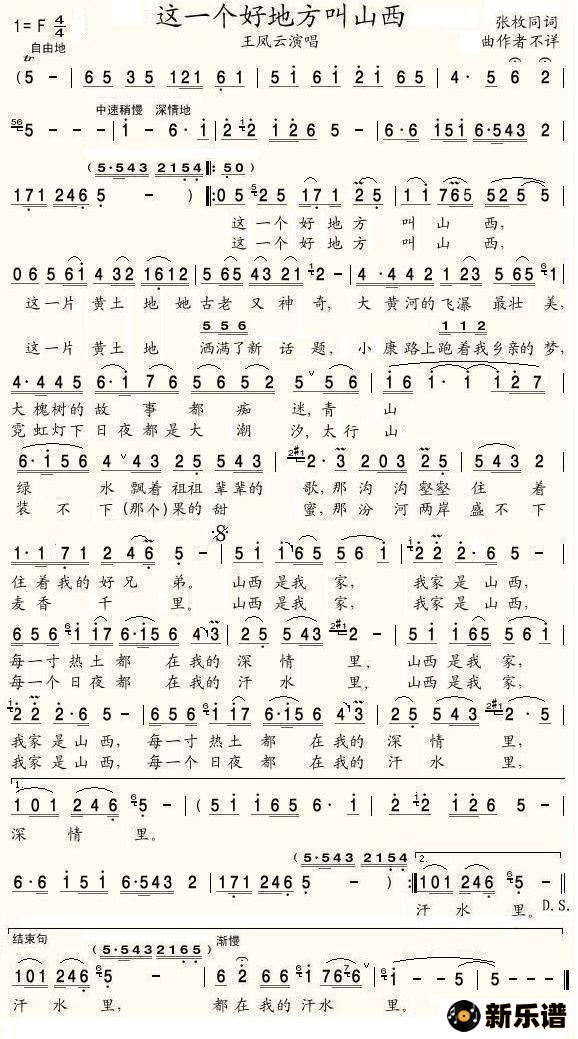 这一个好地方叫山西
1= F 4/4
张枚同词
自由地
王凤云演唱
曲作者不详
(5 - | 6 5 3 5 1 2 1 6 1 | 5 1 6 1 2 1 6 5 | 4· 5 6 2 |
中速稍慢 深情地
56 5 - - - | 1 - 6· 1 | 2 2 1 2 6 5 | 6·6 1 5 1 6·5 4 3 2 |
(5·5 4 3 2 1 5 4 ):(5 0)
1 7 1 2 4 6 5 - ) :0 5 2 5 1 7 1 2 5 | 1 1 7 6 5 5 2 5 5 |
这 一 个 好 地 方 叫 山 西,
这 一 个 好 地 方 叫 山 西,
0 6 5 6 1 4 3 2 1 6 1 2 | 5 6 5 4 3 2 1 1 2 - | 4 · 4 4 2 1 2 3 5 6 5 1 |
这 一 片 黄 土 地 她 古 老 又 神 奇, 大 黄 河 的 飞 瀑 最 壮 美,
5 5 6 1 1 2
这 一 片 黄 土 地 洒 满 了 新 话 题, 小 康 路 上 跑 着 我 乡 亲 的 梦,
4· 4 4 5 6·1 7 6 | 5 6 5 2 5 5 6 | 1 6 1· 1 1 2 7 |
大 槐 树 的 故 事 都 痴 迷, 青 山
霓 虹 灯 下 日 夜 都 是 大 潮 汐, 太 行 山
6·1 5 6 4 4 3 2 5 5 4 3 | 2· 3 2 0 3 2 5 | 5 4 3 2 |
绿 水 飘 着 祖 祖 辈 辈 的 歌, 那 沟 沟 壑 壑 住 着
装 不 下 (那 个) 果 的 甜 蜜, 那 汾 河 两 岸 盛 不 下
1· 1 7 1 2 4 6 5 - | 5 1 1 6 5 5 6 1 | 2 2 2· 6 5 - |
住 着 我 的 好 兄 弟。 山 西 是 我 家, 我 家 是 山 西,
麦 香 千 里。 山 西 是 我 家, 我 家 是 山 西,
6 5 6 1 1 7 6·1 5 6 4 3 | 2 5 5 4 3 2 - | 5 1 1 6 5 5 6 1 |
每 一 寸 热 土 都 在 我 的 深 情 里, 山 西 是 我 家,
每 一 个 日 夜 都 在 我 的 汗 水 里, 山 西 是 我 家,
2 2 2· 6 5 - | 6 5 6 1 1 7 6·1 5 6 4 3 | 2 5 5 4 3 2 · 5 |
我 家 是 山 西, 每 一 寸 热 土 都 在 我 的 深 情 里,
我 家 是 山 西, 每 一 个 日 夜 都 在 我 的 汗 水 里,
1.
1 0 1 2 4 6 5 - | (5 1 1 6 5 6· 1 | 2 2 1 2 6 5 |
深 情 里。
(5·5 4 3 2 1 5 4 )
2.
6·6 1 5 1 6·5 4 3 2 | 1 7 1 2 4 6 5 - ) :1 0 1 2 4 6 5 -
汗 水 里。 D.S.
结束句
(5·5 4 3 2 1 6 5)
渐慢
1 0 1 2 4 6 5 - | 6 2 6 6 1 7 6 6 | 1 - - 5 | 5 - - - |
汗 水 里, 都 在 我 的 汗 水 里。
新乐谱